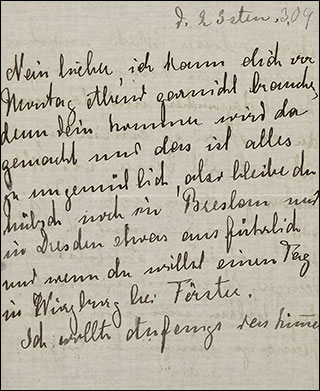 d. 25sten. 3.09
Mein lieber, ich kann dich vor
Montag Abend garnicht brauchen,
denn dein Zimmer wird da
gemacht und das ist alles
so ungemütlich, also bleibe du
hübsch noch in Breslau und
in Dresden etwas ausführlich
und wenn du willst einen Tag
in Würzburg bei Förster.
Ich wollte anfangs